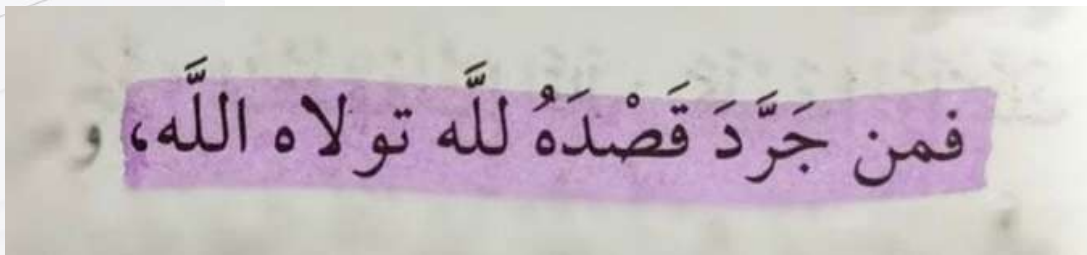 فمن جَرَّدَ قَصْدَهُ للَّه تولاه اللَّه، و